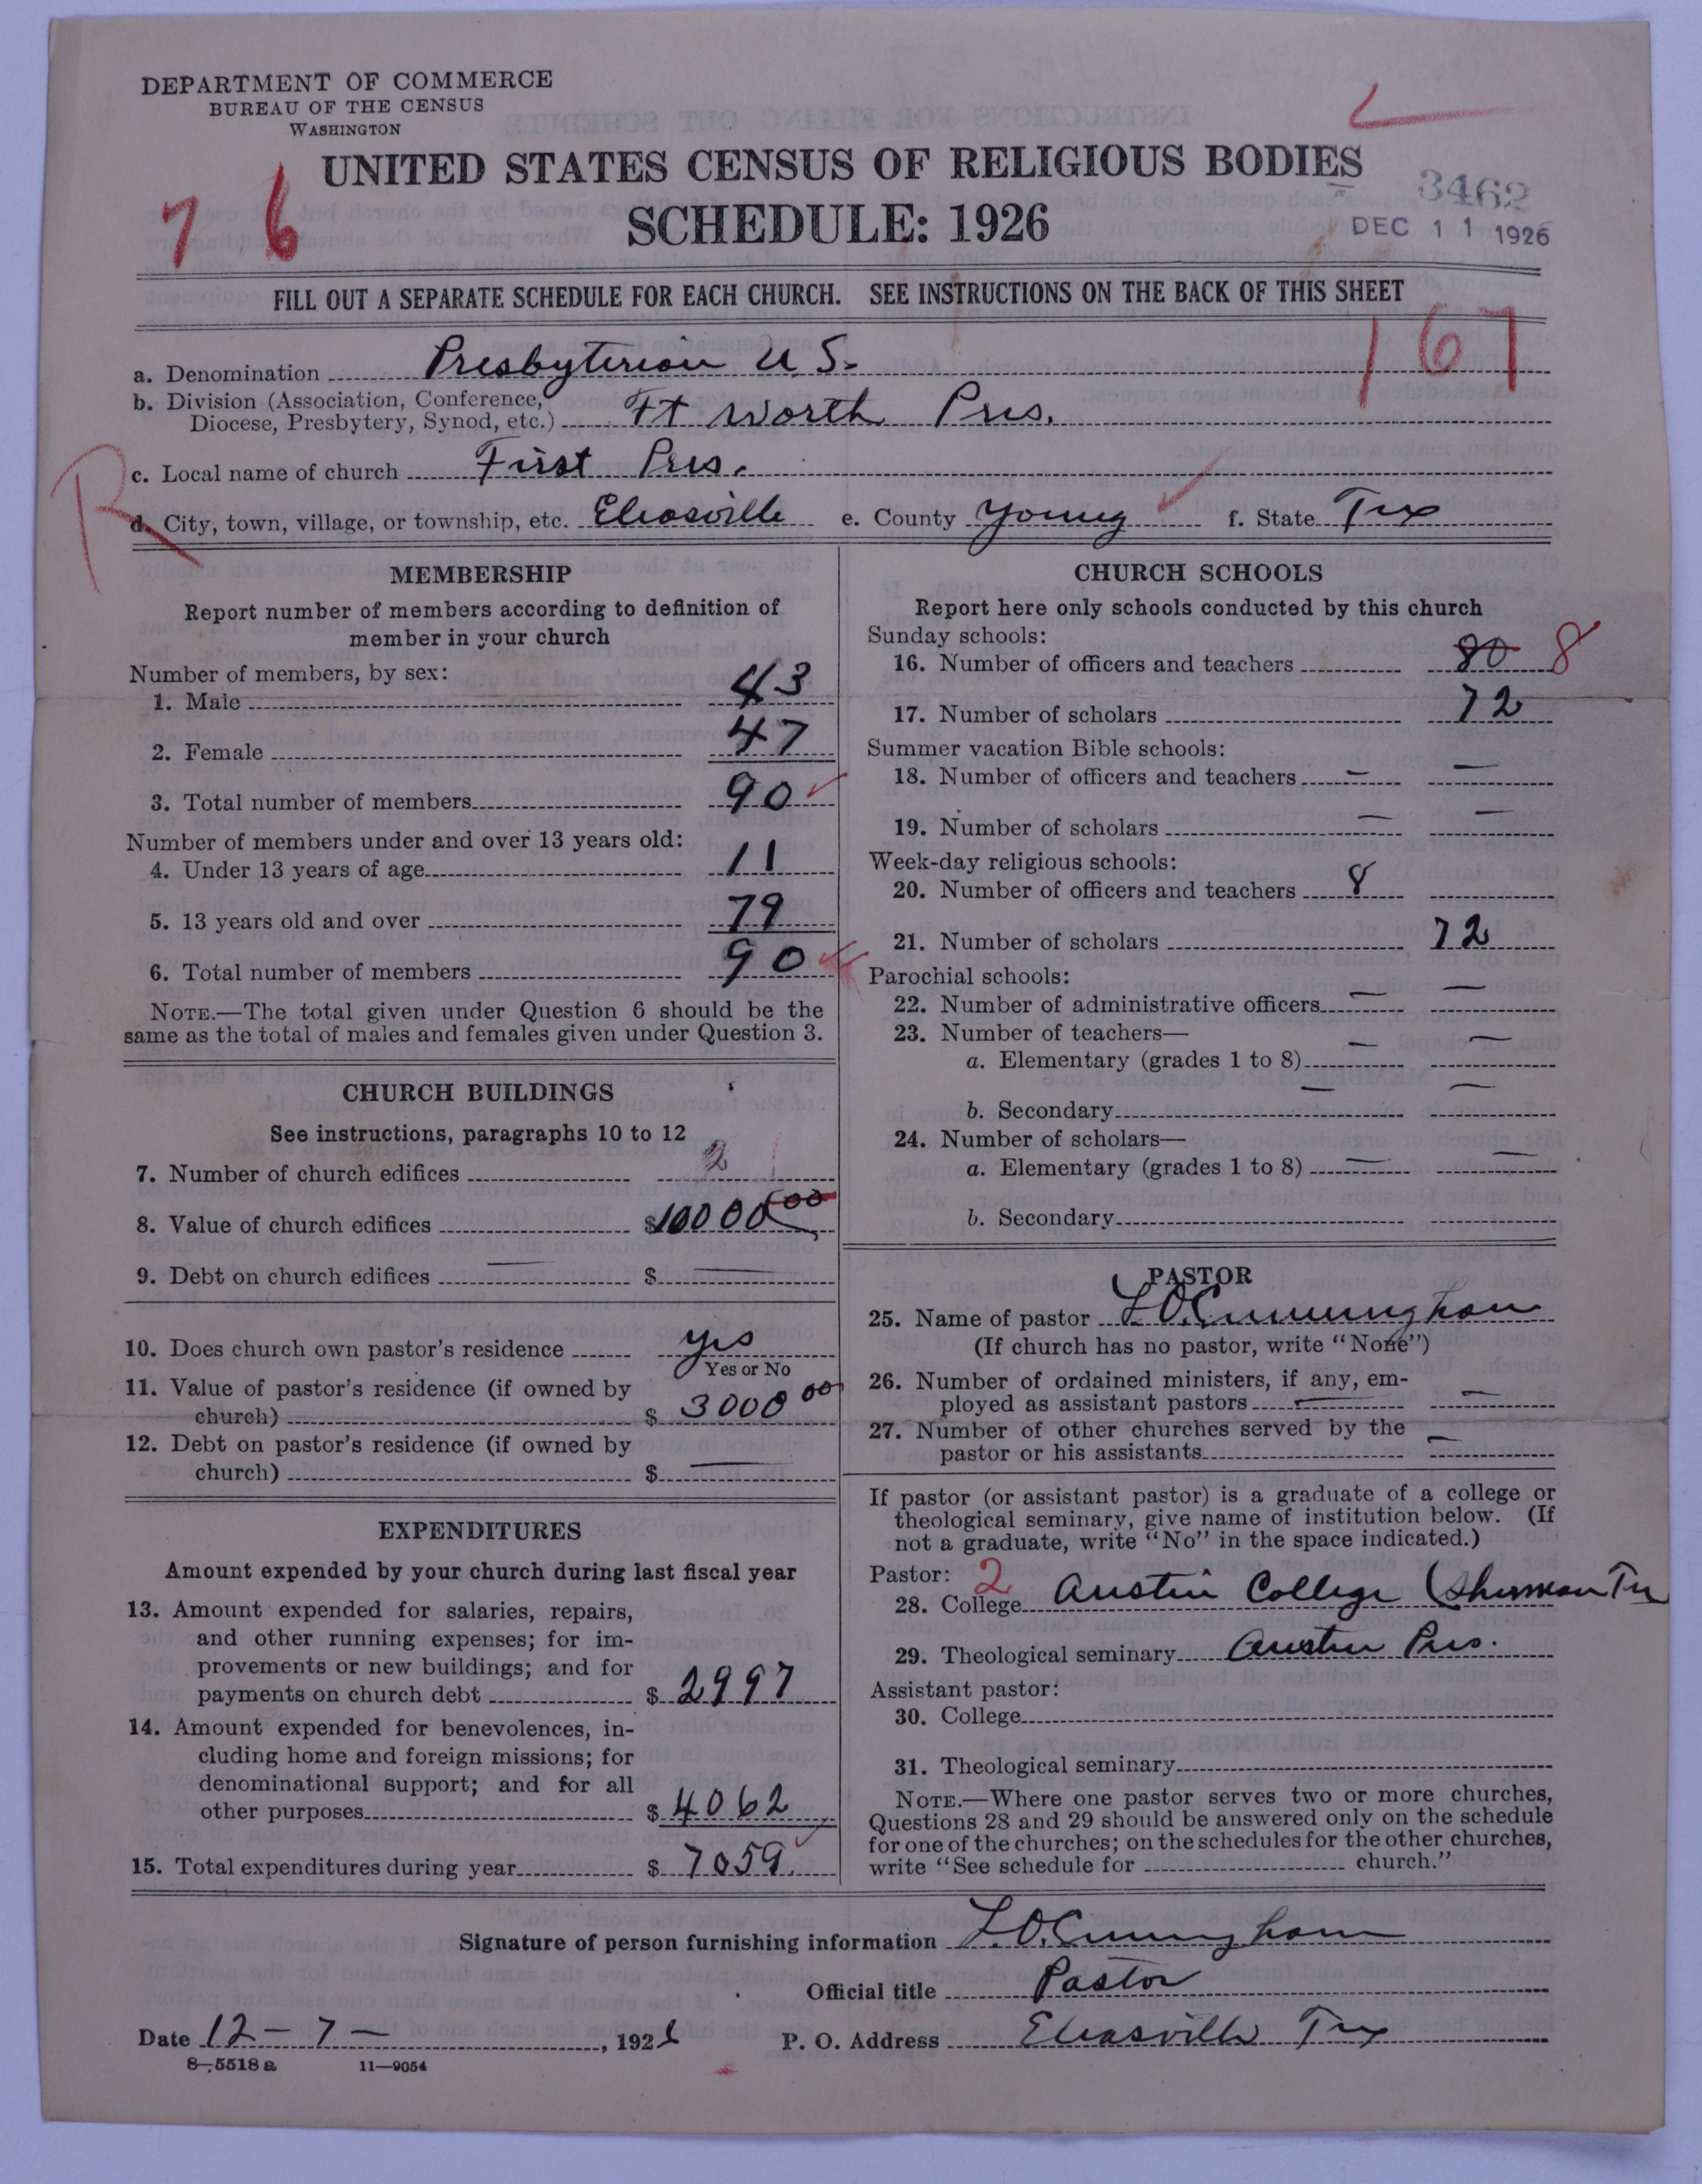 DEPARTMENT OF COMMERCE
BUREAU OF THE CENSUS
WASHINGTON
UNITED STATES CENSUS OF RELIGIOUS BODIES
SCHEDULE: 1926
76
3462
DEC 11 1926
FILL OUT A SEPARATE SCHEDULE FOR EACH CHURCH. SEE INSTRUCTIONS ON THE BACK OF THIS SHEET
167
a. Denomination Presbyterian U.S.
b. Division (Association, Conference, Diocese, Presbytery, Synod, etc.) Ft Worth Pres.
c. Local name of church First Pres.
R
d. City, town, village, or township, etc. Eliasville e. County Young f. State Tex
MEMBERSHIP
Report number of members according to definition of
member in your church
Number of members, by sex:
1. Male 43
2. Female 47
3. Total number of members 90
Number of members under and over 13 years old:
4. Under 13 years of age 11
5. 13 years old and over 79
6. Total number of members 90
NOTE.—The total given under Question 6 should be the
same as the total of males and females given under Question 3.
CHURCH BUILDINGS
See instructions, paragraphs 10 to 12
7. Number of church edifices 2
8. Value of church edifices $10000 00
9. Debt on church edifices — $ —
10. Does church own pastor's residence yes
Yes or No
11. Value of pastor's residence (if owned by
church) $ 3000 00
12. Debt on pastor's residence (if owned by
church) $ —
EXPENDITURES
Amount expended by your church during last fiscal year
13. Amount expended for salaries, repairs,
and other running expenses; for im-
provements or new buildings; and for
payments on church debt $ 2997
14. Amount expended for benevolences, in-
cluding home and foreign missions; for
denominational support; and for all
other purposes $ 4062
15. Total expenditures during year $ 7059
CHURCH SCHOOLS
Report here only schools conducted by this church
Sunday schools:
16. Number of officers and teachers 80 8
17. Number of scholars 72
Summer vacation Bible schools:
18. Number of officers and teachers — —
19. Number of scholars — —
Week-day religious schools:
20. Number of officers and teachers 8
21. Number of scholars 72
Parochial schools:
22. Number of administrative officers — —
23. Number of teachers—
a. Elementary (grades 1 to 8) — —
b. Secondary — —
24. Number of scholars—
a. Elementary (grades 1 to 8) — —
b. Secondary
PASTOR
25. Name of pastor L.O. Cunningham
(If church has no pastor, write "None")
26. Number of ordained ministers, if any, em-
ployed as assistant pastors — —
27. Number of other churches served by the
pastor or his assistants —
If pastor (or assistant pastor) is a graduate of a college or
theological seminary, give name of institution below. (If
not a graduate, write "No" in the space indicated.)
Pastor: 2
28. College Austin College (Sherman Tex
29. Theological seminary Austin Pres.
Assistant pastor:
30. College
31. Theological seminary
NOTE.—Where one pastor serves two or more churches,
Questions 28 and 29 should be answered only on the schedule
for one of the churches; on the schedules for the other churches,
write "See schedule for church."
Signature of person furnishing information L.O. Cunningham
Official title Pastor
Date 12-7-, 1926 P. O. Address Eliasville Tex
8-5518 a 11-9054